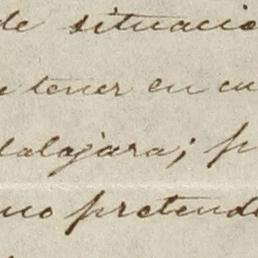 de situacio
tener en cu
dalajara; p
mo pretend